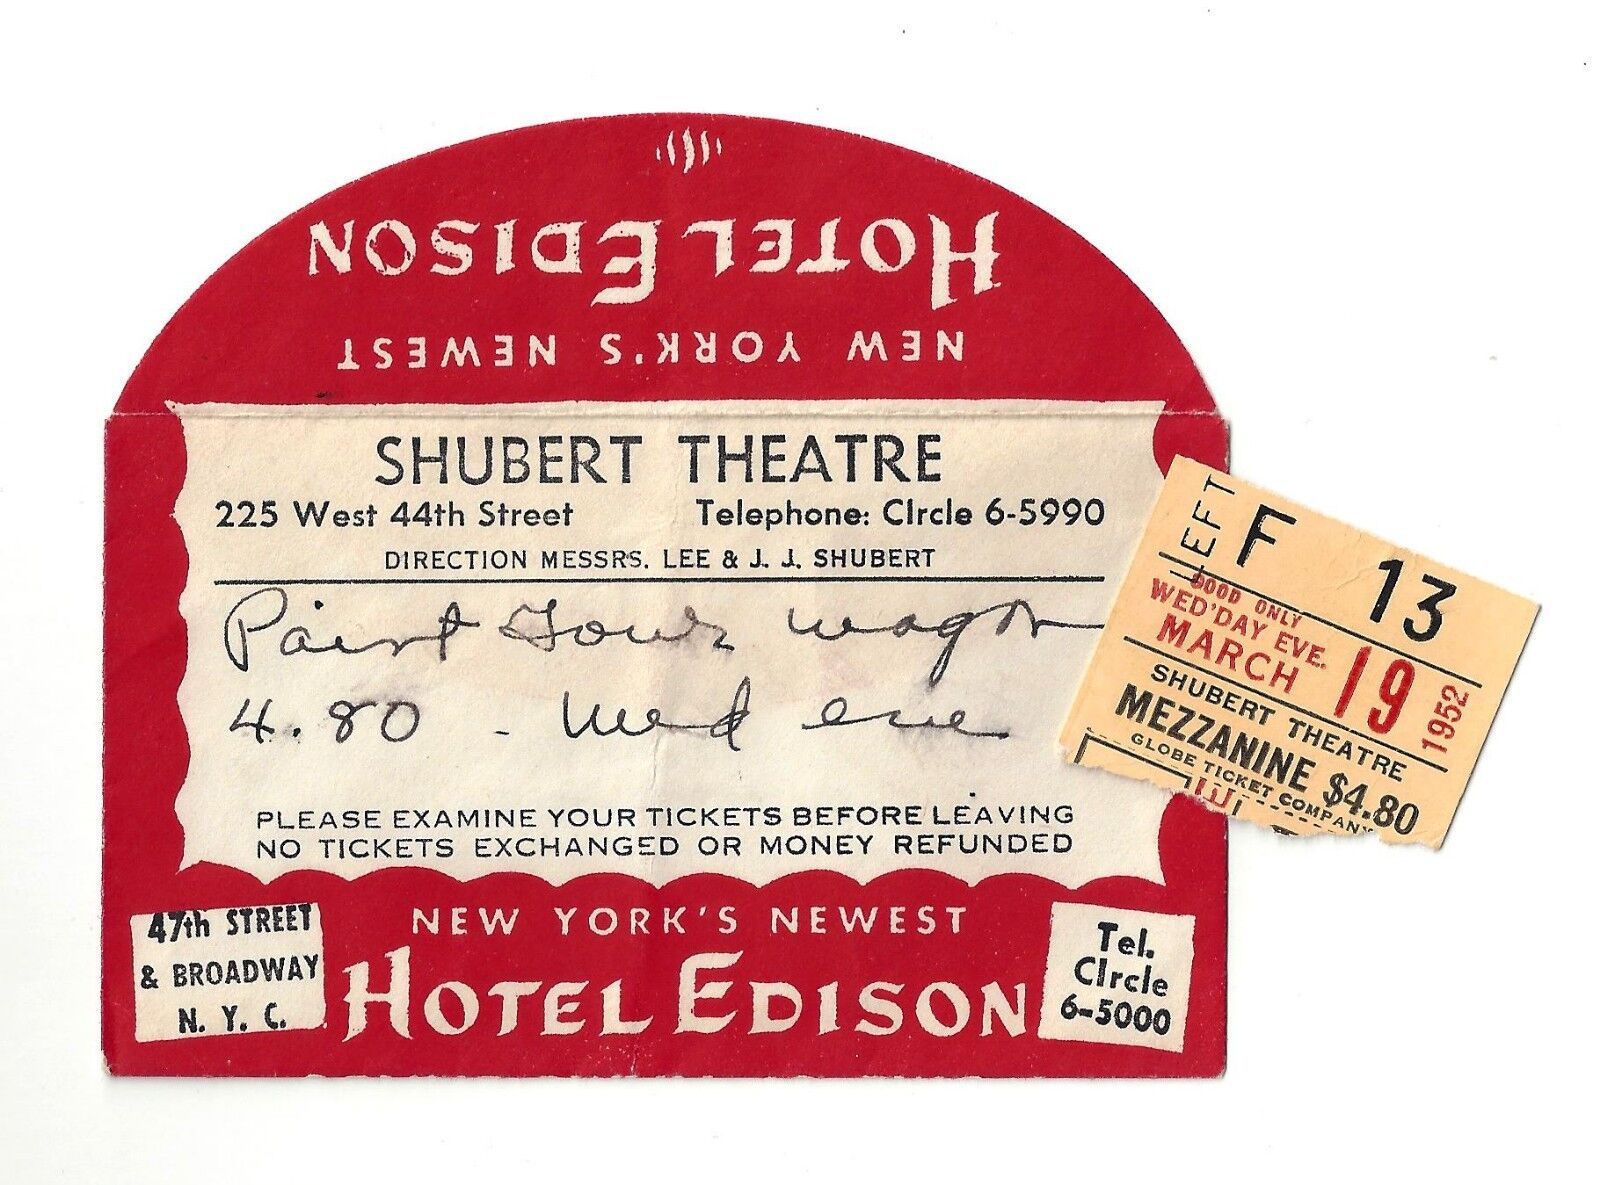 HOTEL EDISON
NEW YORK'S NEWEST
SHUBERT THEATRE
225 West 44th Street Telephone: CIrcle 6-5990
DIRECTION MESSRS. LEE & J. J. SHUBERT
Paint Your Wagon
4.80 - Wed eve
PLEASE EXAMINE YOUR TICKETS BEFORE LEAVING
NO TICKETS EXCHANGED OR MONEY REFUNDED
47th STREET
& BROADWAY
N. Y. C.
NEW YORK'S NEWEST
HOTEL EDISON
Tel.
CIrcle
6-5000
LEFT F 13
GOOD ONLY
WED'DAY EVE.
MARCH 19 1952
SHUBERT THEATRE
MEZZANINE $4.80
GLOBE TICKET COMPANY